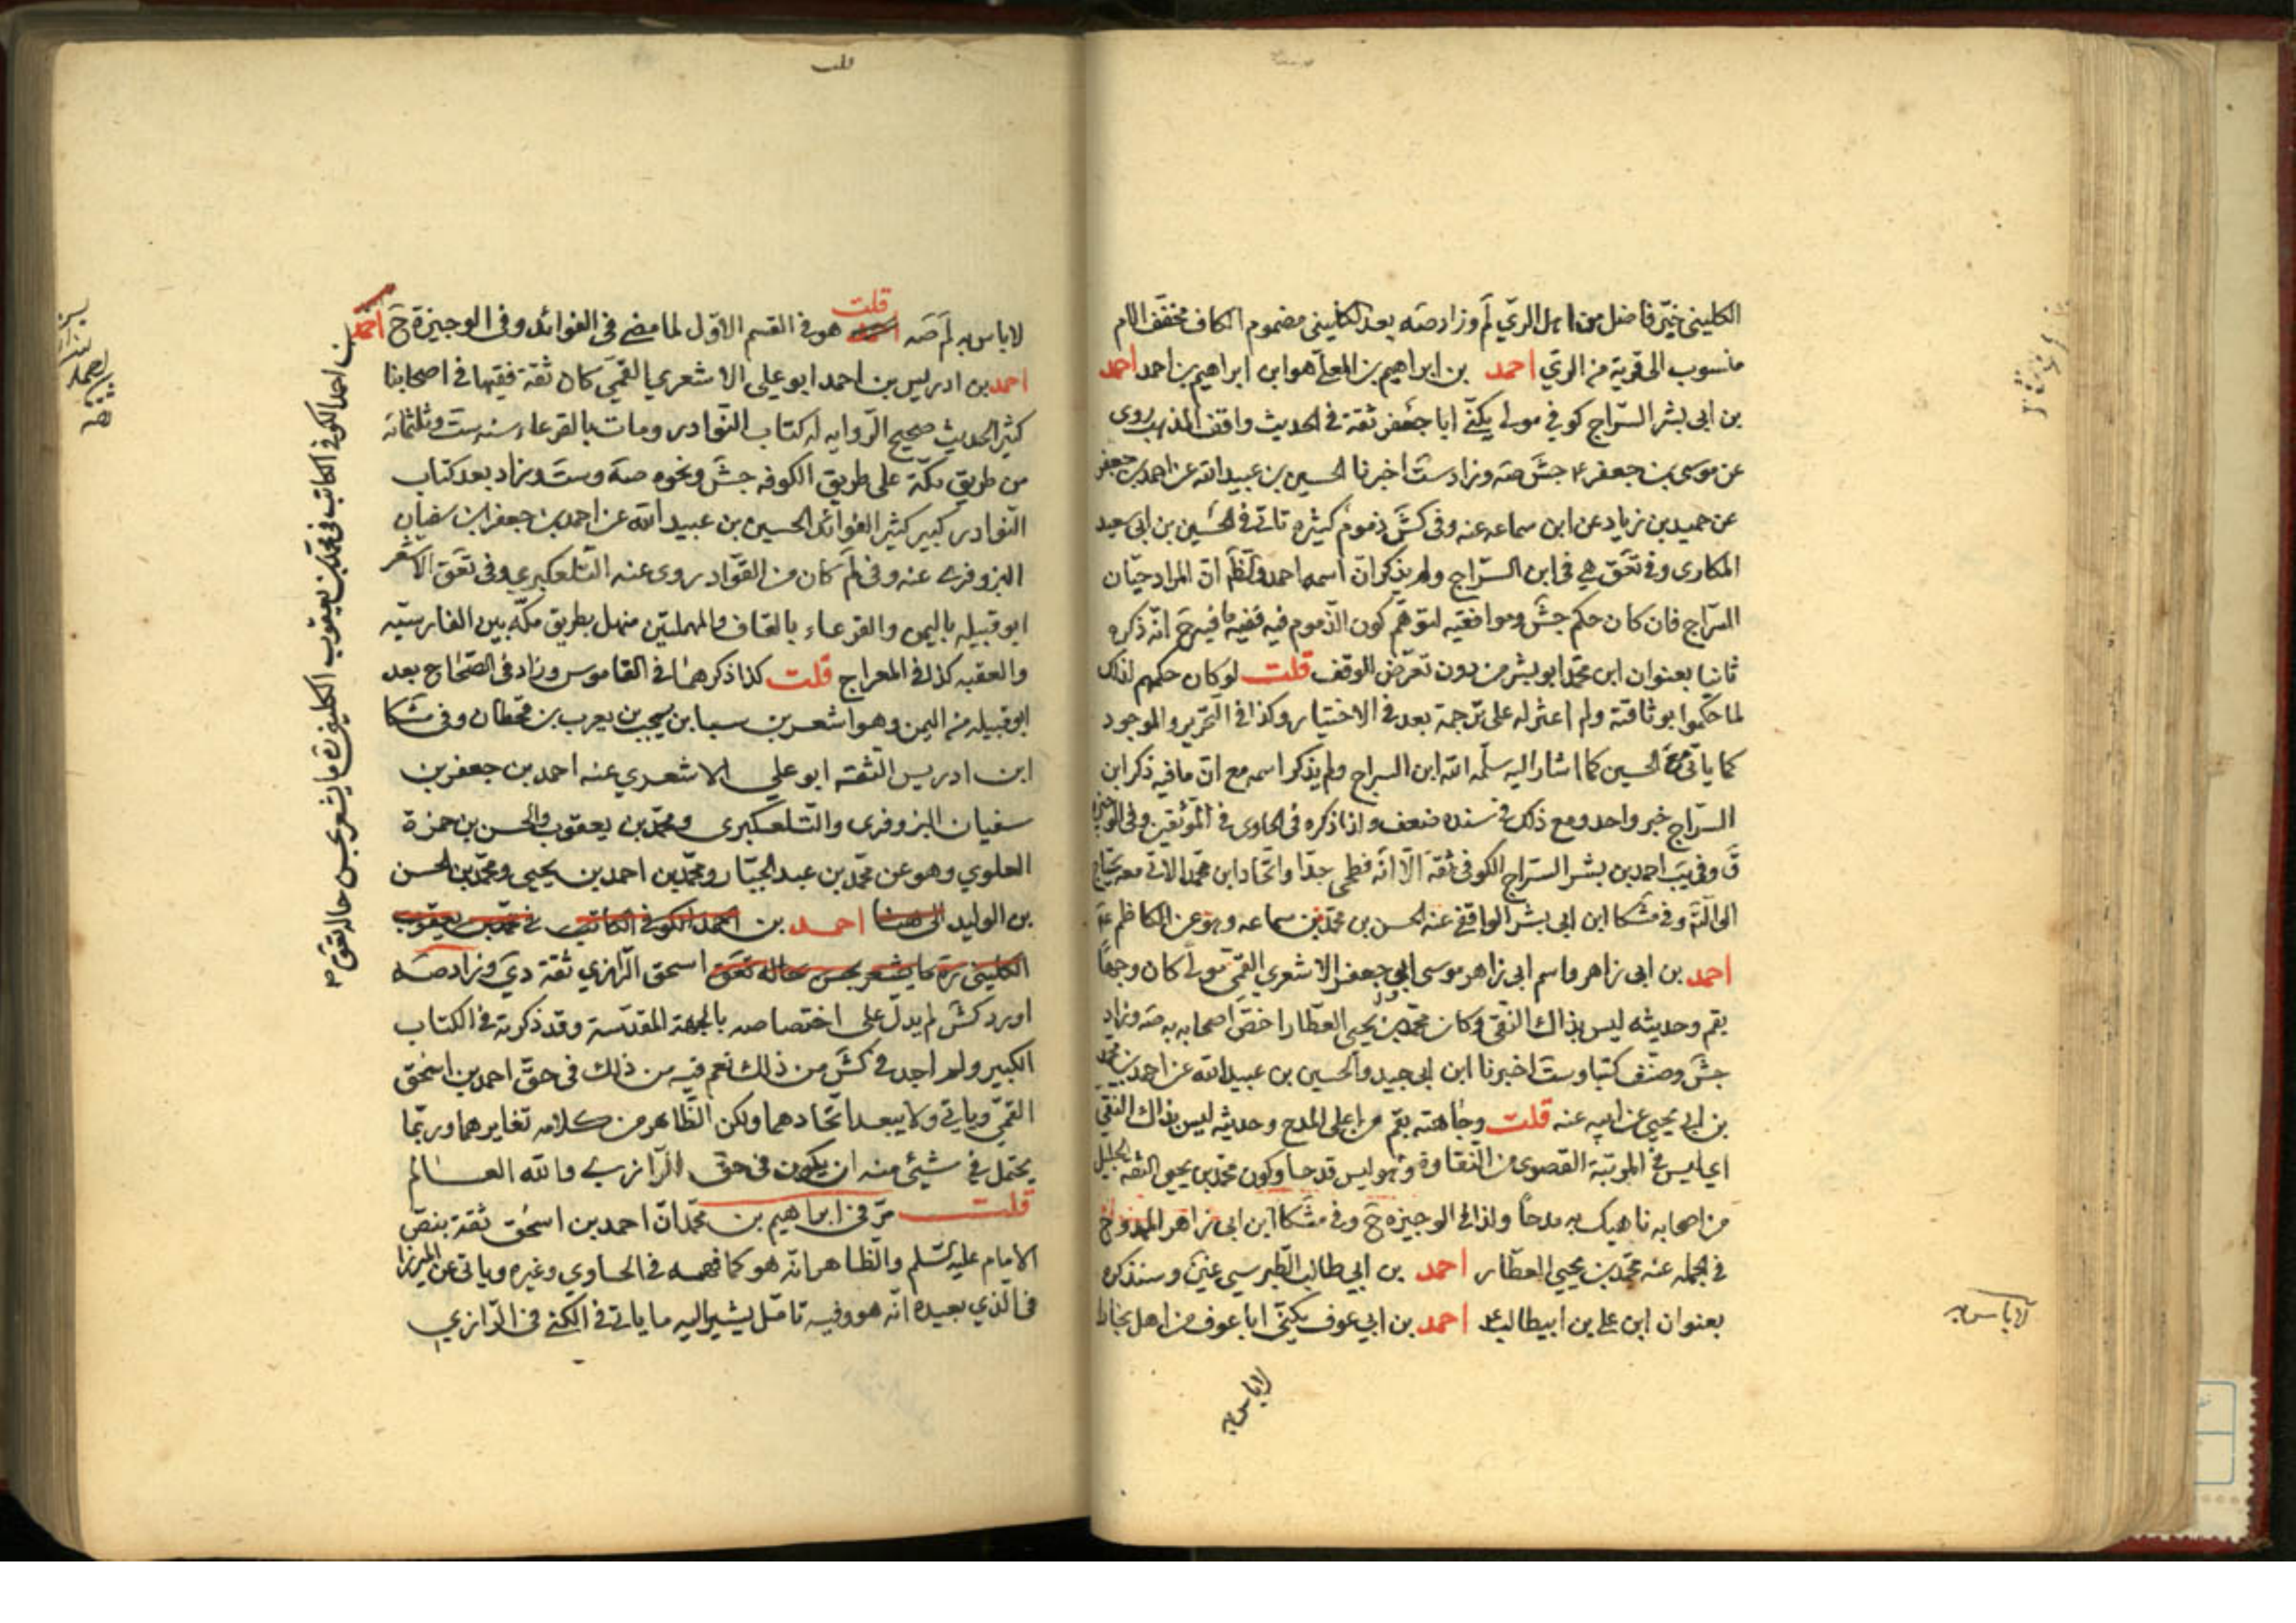 الكليني خيّر فاضل من اهل الريّ لم وزاد صه بعد الكليني مضموم الكاف مخفف اللام
منسوب الى قرية من الري احمد بن ابراهيم بن المعلّا هو ابن ابراهيم بن احمد احمد
بن ابى بشر السّراج كوفي مولى يكنّى ابا جعفر ثقة في الحديث واقف المذهب روى
عن موسى بن جعفر ع جش صه وزاد ست اخبرنا الحسين بن عبيد الله عن احمد بن جعفر
عن حميد بن زياد عن ابن سماعه عنه وفى كش ذموم كثيرة تاتى في الحسين بن ابى سعيد
المكارى وفي تعق هي في ابن السرّاج ولم يذكر ان اسمه احمد والظ انّ المراد حيّان
السرّاج فان كان حكم جش وموافقيه لتوهّم كون الذموم فيه ففيه ما فيه ح انّه ذكره
ثانيا بعنوان ابن محمّد ابو بشر من دون تعرّض للوقف قلت لو كان حكمهم لذلك
لما حكموا بوثاقته ولم اعثر له على ترجمة بعد في الاختيار وكذا في التحرير والموجود
كما ياتى في الحسين كما اشار اليه سلّمه الله ابن السراج ولم يذكر اسمه مع انّ ما فيه ذكر ابن
السرّاج خبر واحد ومع ذلك في سنده ضعف ولذا ذكره فى الحاوى في الموثقين وفى الوجيزة
ق وفي ب احمد بن بشر السرّاج الكوفى ثقة الّا انّه فطحى جدّا واتّحاد ابن محمّد الاتى معه يحتاج
الى التامّ وفي مشكا ابن ابى بشر الواقفى عنه الحسن بن محمّد بن سماعه وهو عن الكاظم ع
احمد بن ابى زاهر واسم ابى زاهر موسى ابى جعفر الاشعري القمّى مولى كان وجها
بقم وحديثه ليس بذاك النقى وكان محمّد بن يحيى العطّار اخصّ اصحابه به صه وزاد
جش وصنّف كتبا وست اخبرنا ابن ابى جيد والحسين بن عبيد الله عن احمد بن محمد
بن يحيى عن ابيه عنه قلت وجاهته بقم من اعلى المدح وحديثه ليس بذاك النقي
اى ليس في المرتبة القصوى من النقاوة وهو ليس قدحا وكون محمّد بن يحيى الثقة الجليل
من اصحابه ناهيك به مدحاً ولذا في الوجيزه ح وفي مشكا ابن ابى زاهر الممدوح
في الجمله عنه محمّد بن يحيى العطّار احمد بن ابي طالب الطبرسي غير وسنذكره
بعنوان ابن علي بن ابيطالب احمد بن ابي عوف يكنّى ابا عوف من اهل بخارا
لا باس به
لا باس به
لا باس به لم صه قلت هو في القسم الاوّل لما مضى في الفوائد وفى الوجيزة ح احمد
احمد بن ادريس بن احمد ابو على الاشعري القمّي كان ثقة فقيها في اصحابنا
كثير الحديث صحيح الرّوايه له كتاب النوّادر ومات بالقرعاء سنه ست وثلثمائه
من طريق مكّة على طريق الكوفه جش ونحوه صه وست وزاد بعد كتاب
النّوادر كبير كثير الفوائد الحسين بن عبيد الله عن احمد بن جعفر بن سفيان
البزوفرى عنه وفى لم كان من القوّاد روى عنه التلعكبري وفى تعق الاشعر
ابو قبيله باليمن والقرعاء بالقاف والمهملتين منهل بطريق مكّه بين القادسيّه
والعقبه كذا في المعراج قلت كذا ذكرهما في القاموس وزاد في الصّحاح بعد
ابو قبيله من اليمن وهو اشعر بن سبا بن يشجب بن يعرب بن قحطان وفى مشكا
ابن ادريس الثقه ابو علي الاشعري عنه احمد بن جعفر بن
سفيان البزوفرى والتلعكبرى ومحمّد بن يعقوب والحسن بن حمزة
العلوي وهو عن محمّد بن عبد الجبّار ومحمّد بن احمد بن يحيى ومحمّد بن الحسن
بن الوليد الى هنا احمد بن احمد الكوفى الكاتب فى محمّد بن يعقوب
الكلينى ره ما يشعر بحسن حاله تعق اسحق الرّازي ثقة دي وزاد صه
اورد كش لم يدلّ على اختصاصه بالجهة المقدّسة وقد ذكرته في الكتاب
الكبير ولم اجد في كش من ذلك نعم فيه من ذلك في حقّ احمد بن اسحق
القمّي وياتي ولا يبعد اتّحادهما ولكن الظّاهر من كلامه تغايرهما وربّما
يحتمل في شيئ منه ان يكون فى حق الرّازي والله العالم
قلت مرّ في ابراهيم بن محمّد انّ احمد بن اسحق ثقة بنصّ
الامام عليه السّلم والظاهر انه هو كما فهمه في الحاوي وغيره وياتى عن الميرزا
فى الذي بعيده انّه هو وفيه تامّل يشير اليه ما ياتى في الكنى في الرّازي
بن احمد الكوفى الكاتب فى محمّد بن يعقوب الكلينى ره ما يشعر بحسن حاله تعق